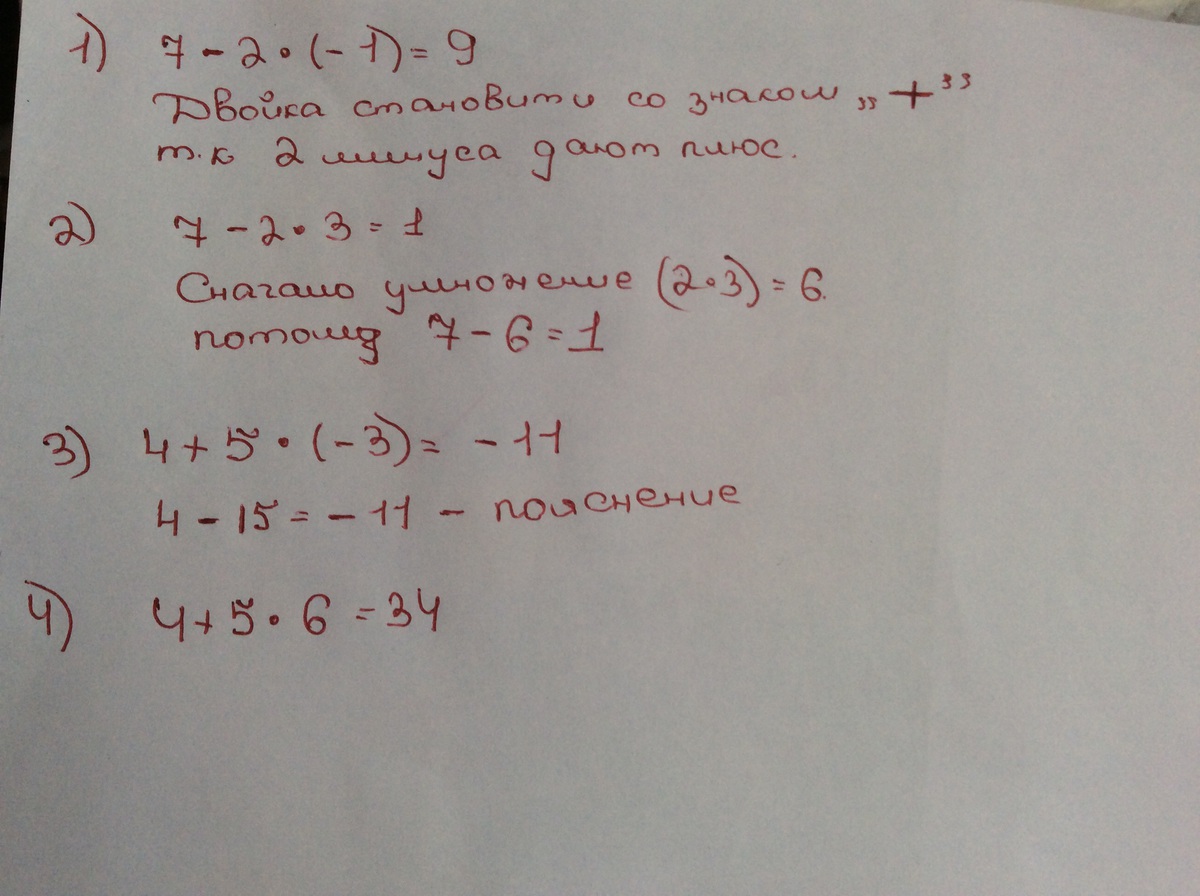 1) 7 - 2 • (- 1) = 9
Двойка становити со знаком „+”
т.к 2 минуса дают плюс.
2) 7 - 2 • 3 = 1
Сначало умножение (2•3) = 6.
потомд 7 - 6 = 1
3) 4 + 5 • (- 3) = - 11
4 - 15 = - 11 - пояснение
4) 4 + 5 • 6 = 34